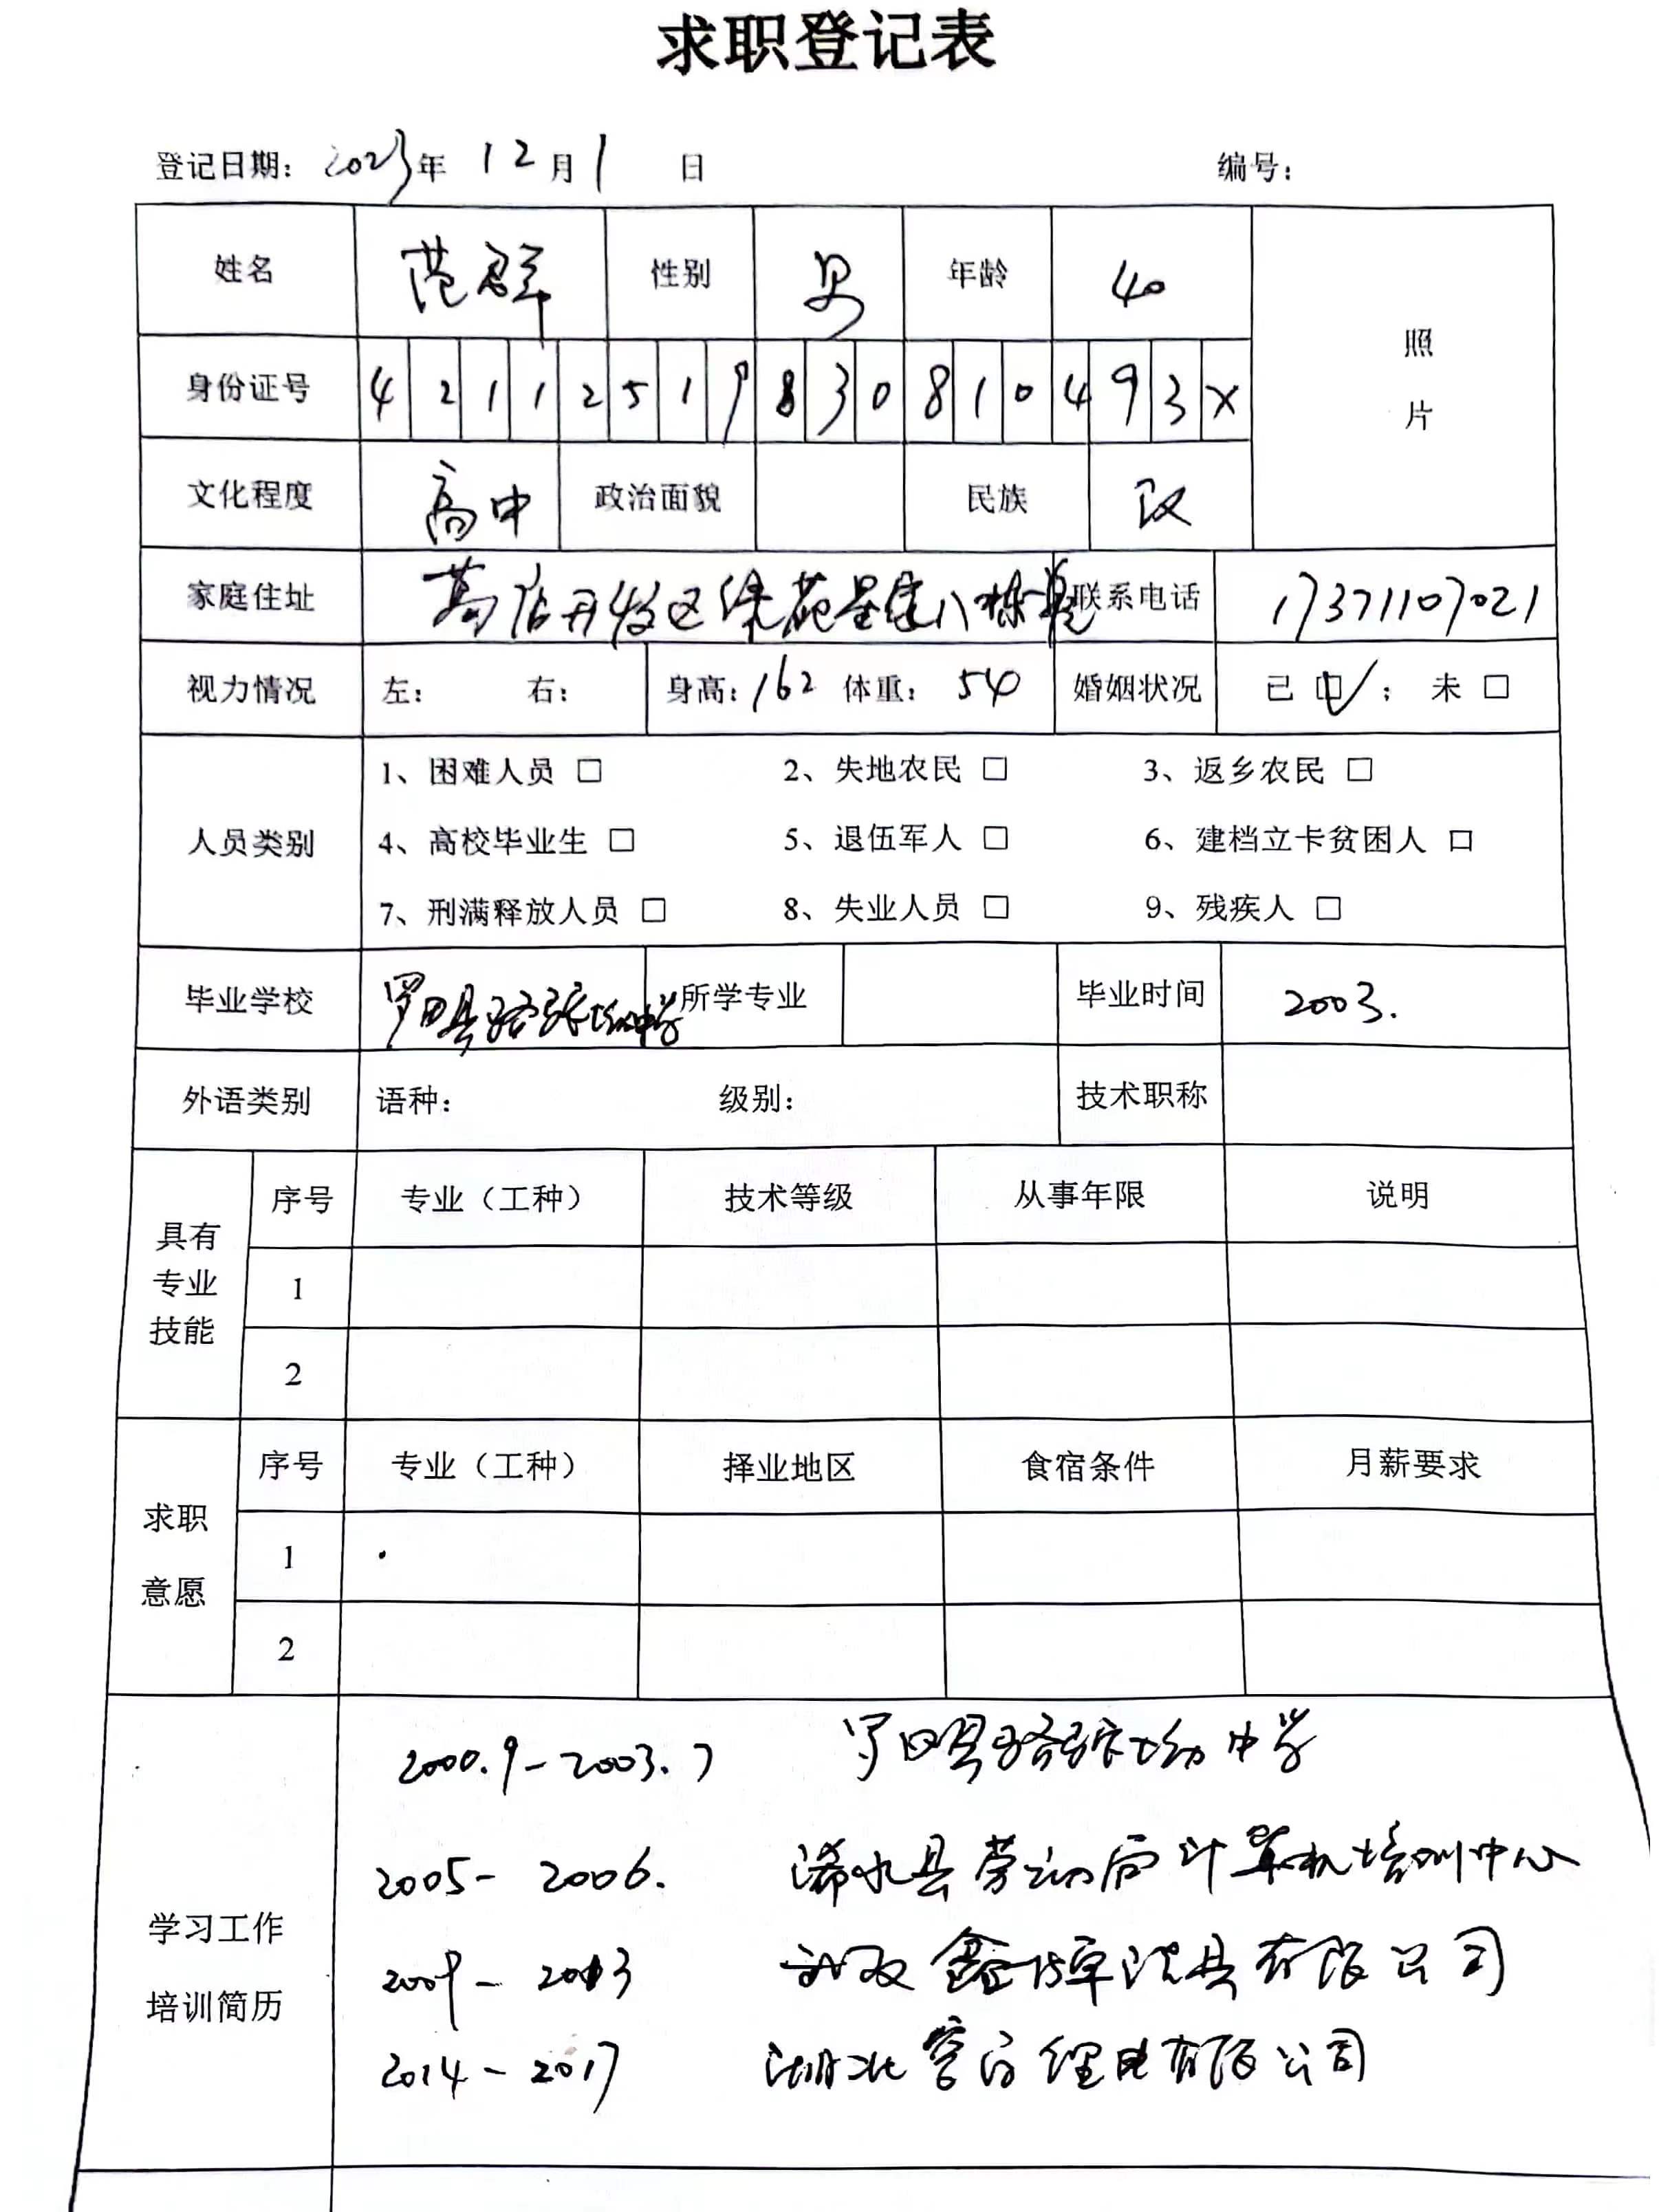 求职登记表
登记日期: 2023年 12月1 日 编号:
姓名 范群 性别 男 年龄 40 照片
身份证号 42112519830810493X
文化程度 高中 政治面貌 民族 汉
家庭住址 葛店开发区绿苑星 八栋 联系电话 17371107021
视力情况 左: 右: 身高:162 体重: 54 婚姻状况 已☑; 未□
人员类别
1、困难人员 □ 2、失地农民 □ 3、返乡农民 □
4、高校毕业生 □ 5、退伍军人 □ 6、建档立卡贫困人 □
7、刑满释放人员 □ 8、失业人员 □ 9、残疾人 □
毕业学校 罗田县骆驼坳中学 所学专业 毕业时间 2003.
外语类别 语种: 级别: 技术职称
具有专业技能
序号 专业(工种) 技术等级 从事年限 说明
1
2
求职意愿
序号 专业(工种) 择业地区 食宿条件 月薪要求
1
2
学习工作
培训简历
2000.9-2003.7 罗田县骆驼坳中学
2005-2006. 浠水县劳动局计算机培训中心
2009-2013 武汉鑫 有限公司
2014-2017 湖北 锂电有限公司